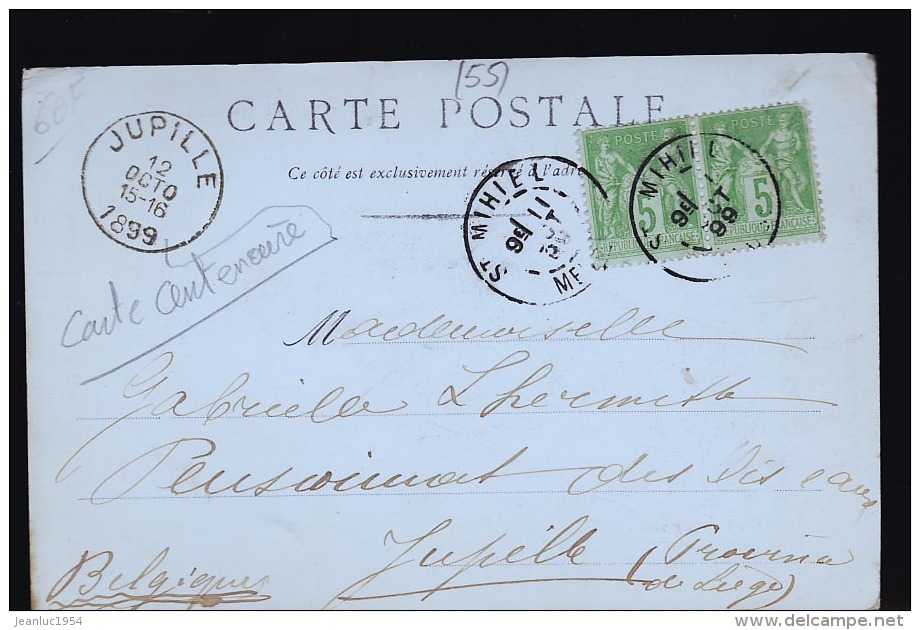 60F
(55)
CARTE POSTALE
Ce côté est exclusivement réservé à l'adre
JUPILLE
12
OCTO
15-16
1899
ST MIHIEL
11
OCT
99
ME
POSTE
5
REPUBLIQUE FRANÇAISE
ST MIHIEL
OCT
99
POSTE
5
REPUBLIQUE FRANÇAISE
Carte Centenaire
Mademoiselle
Gabriele Lhermitte
Pensionnat des
Jupille (Province
de Liège)
Belgique
© jeanluc1954
delcampe.net